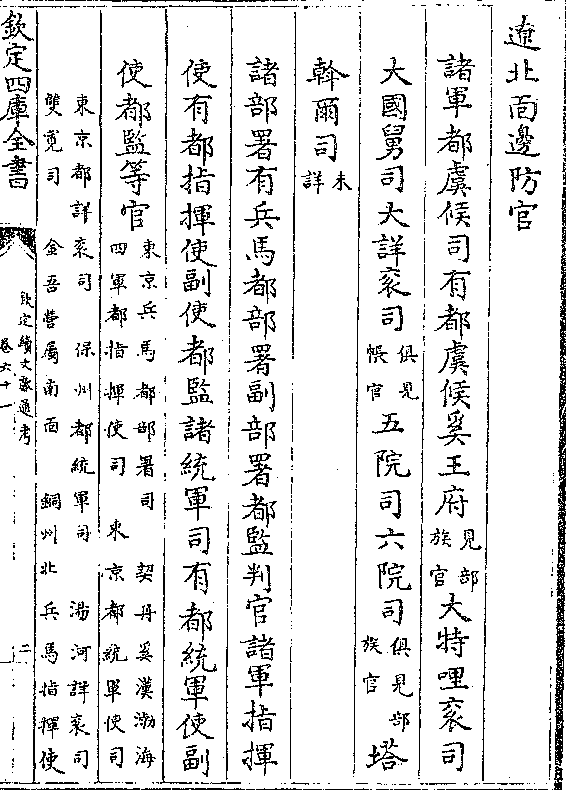 遼北面邊防官
諸軍都虞候司有都虞候奚王府見部族官大特哩衮司
大國舅司大詳衮司俱見帳官五院司六院司俱見部族官塔
斡爾司未詳
諸部署有兵馬都部署副部署都監判官諸軍指揮
使有都指揮使副使都監諸統軍司有都統軍使副
使都監等官東京兵馬都部署司 契丹奚漢渤海
四軍都指揮使司 東京都統軍使司
東京都詳衮司 保州都統軍司 湯河詳衮司
雙寬司 金吾營屬南面 銅州北兵馬指揮使
欽定四庫全書
欽定續文獻通考
卷六十一
二